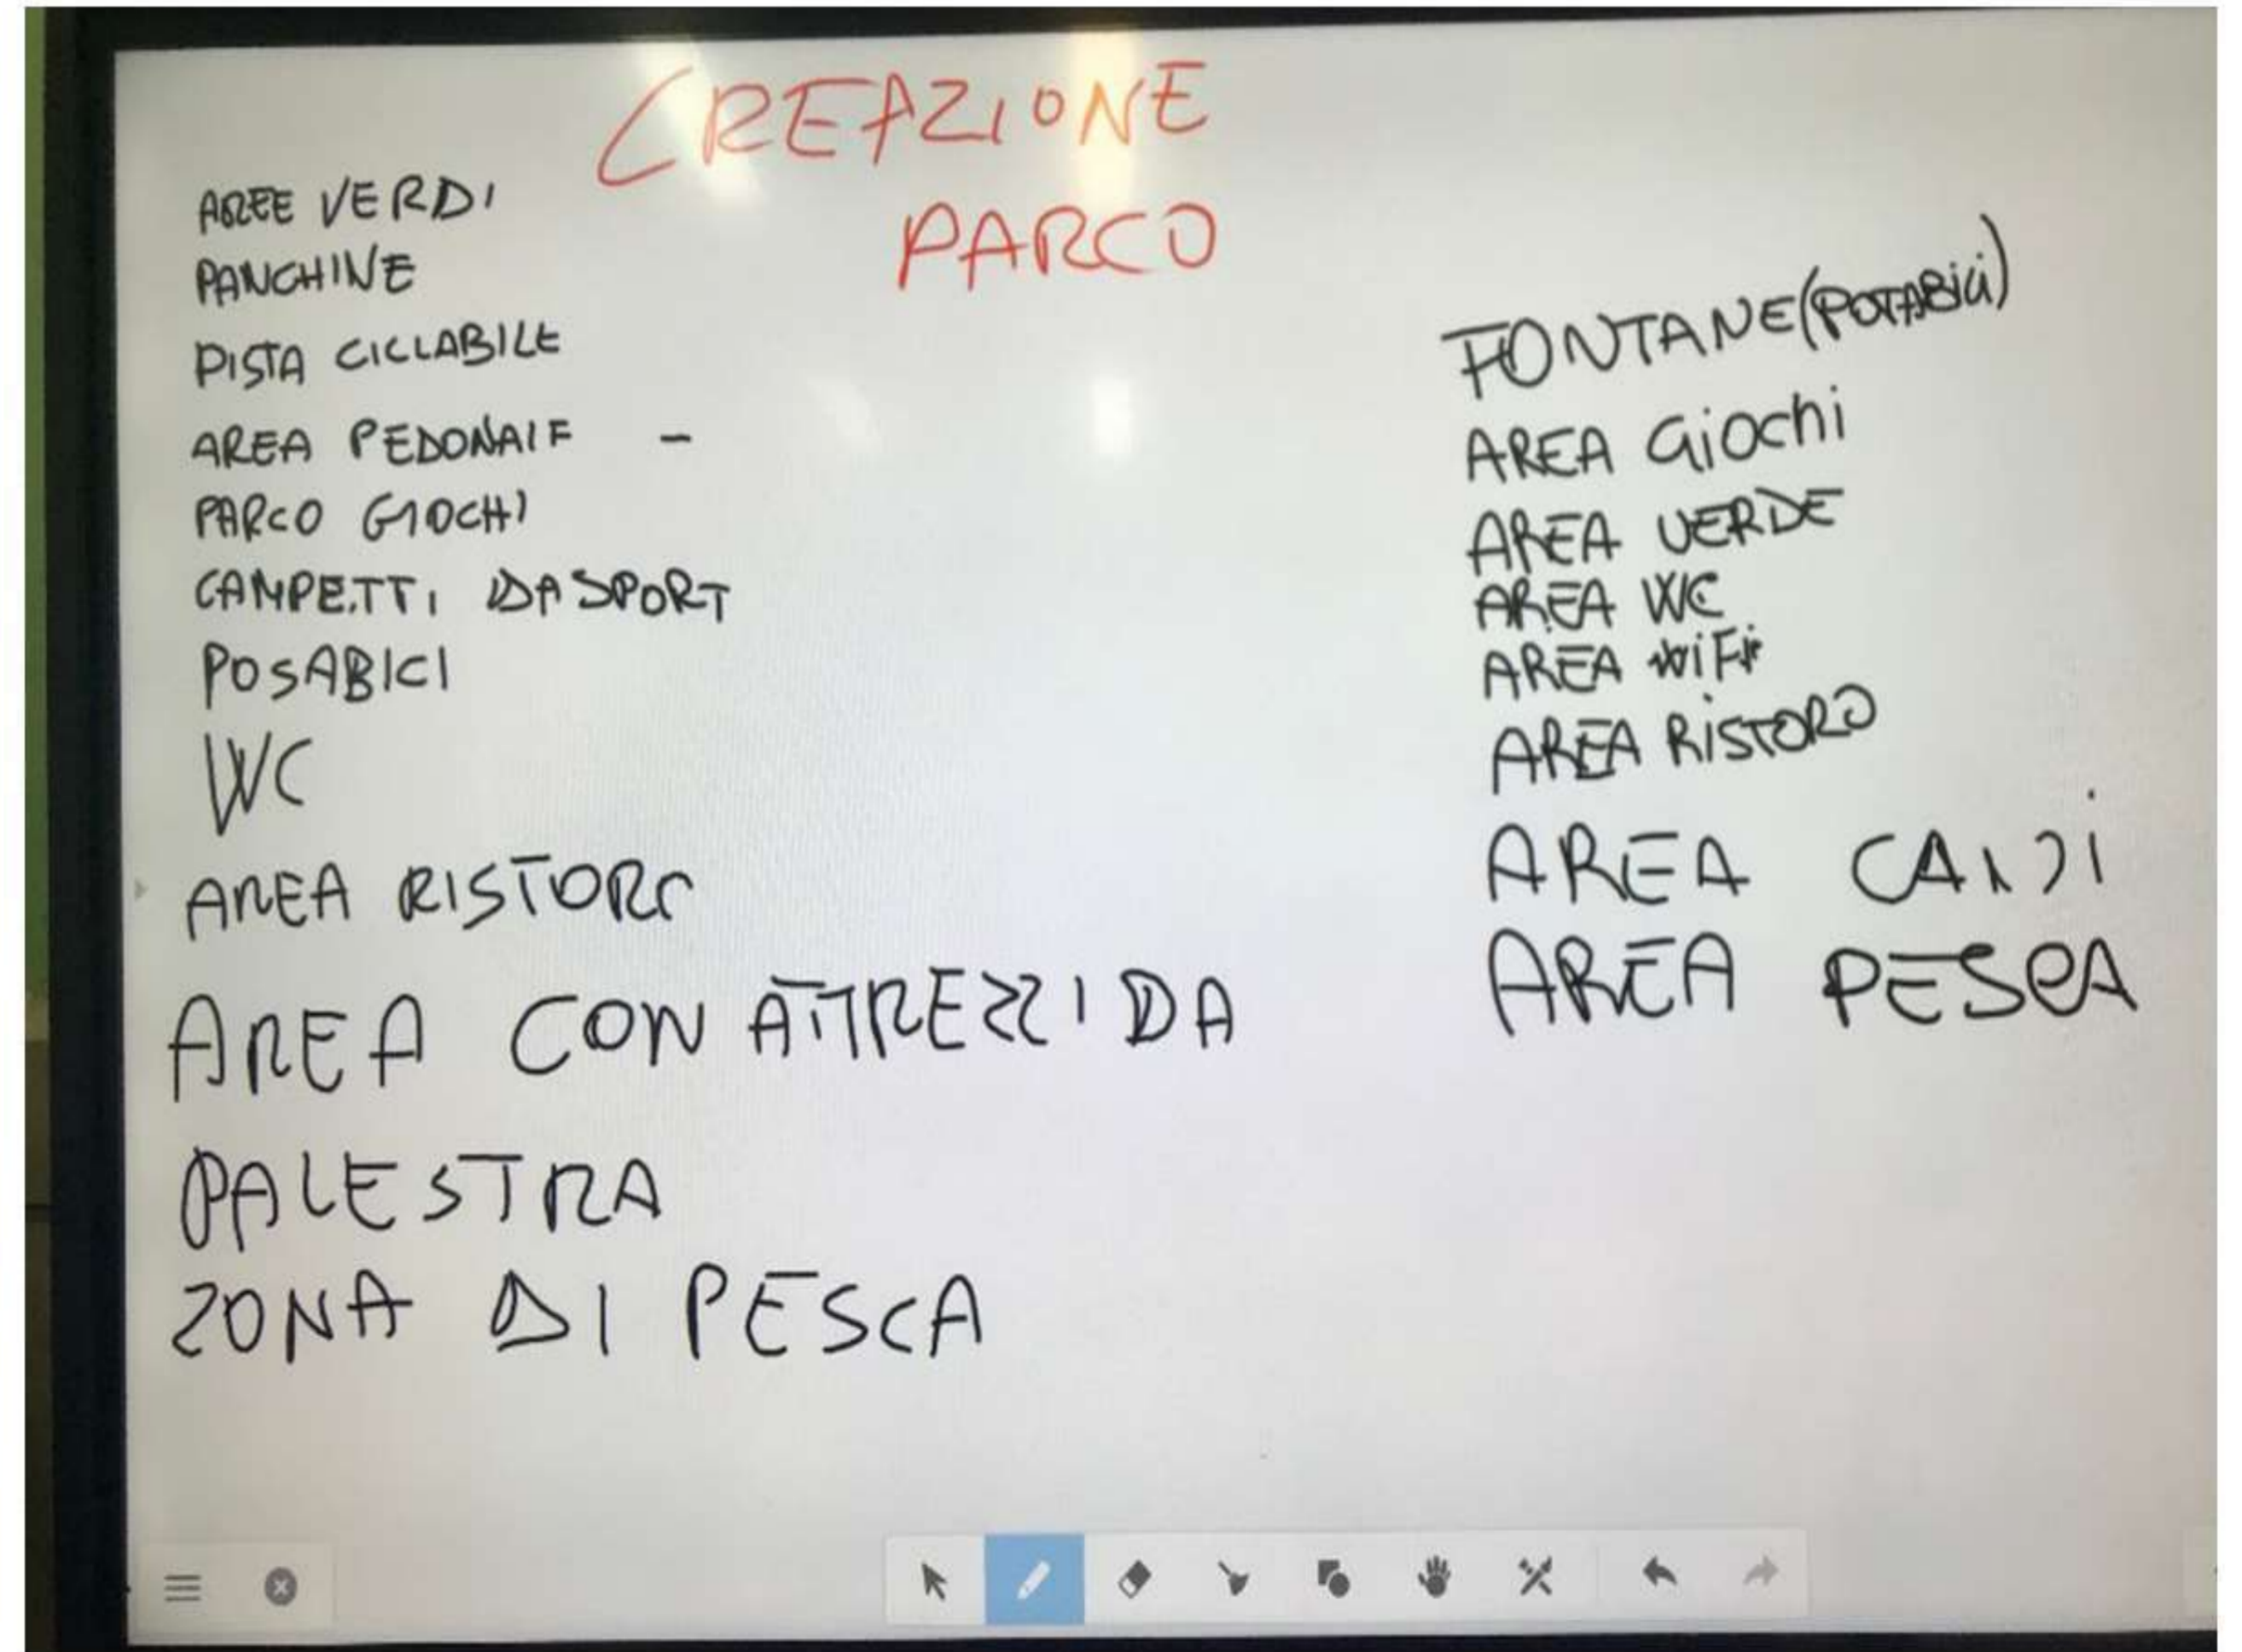 CREAZIONE
PARCO
AREE VERDI
PANCHINE
PISTA CICLABILE
AREA PEDONALE -
PARCO GIOCHI
CAMPETTI DA SPORT
POSABICI
WC
AREA RISTORO
AREA CON ATTREZZI DA
PALESTRA
ZONA DI PESCA
FONTANE (POTABILI)
AREA GiOChi
AREA VERDE
AREA WC
AREA WiFi
AREA RiSTORO
AREA CANi
AREA PESCA